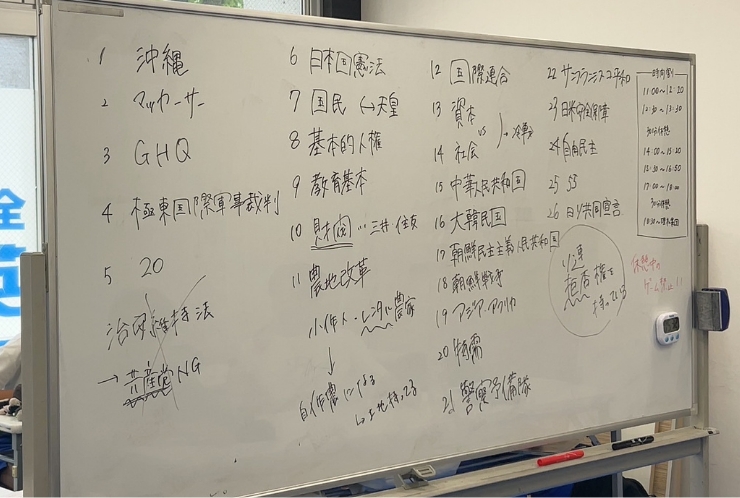 1 沖縄
2 マッカーサー
3 GHQ
4 極東国際軍事裁判
5 20
治安維持法
→ 共産党 NG
6 日本国憲法
7 国民 ↔ 天皇
8 基本的人権
9 教育基本
10 財閥 … 三井 住友
11 農地改革
小作人
農家
↓
自作農になる
12 国際連合
13 資本
vs
冷戦
14 社会
15 中華人民共和国
16 大韓民国
17 朝鮮民主主義人民共和国
18 朝鮮戦争
19 アジア・アフリカ
20 特需
21 警察予備隊
22 サンフランシスコ平和
23 日米安全保障
24 自由民主
25 55
26 日ソ共同宣言
ソ連
拒否権を
持っている
時間割
11:00~12:20
12:30~13:30
30分休憩
14:00~15:20
15:30~16:50
17:00~18:00
30分休憩
18:30~
休憩中の
ゲーム禁止!!
全